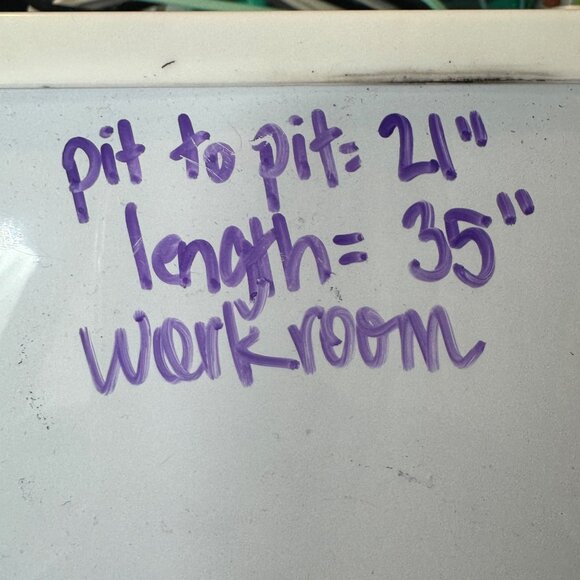 pit to pit= 21"
length= 35"
workroom